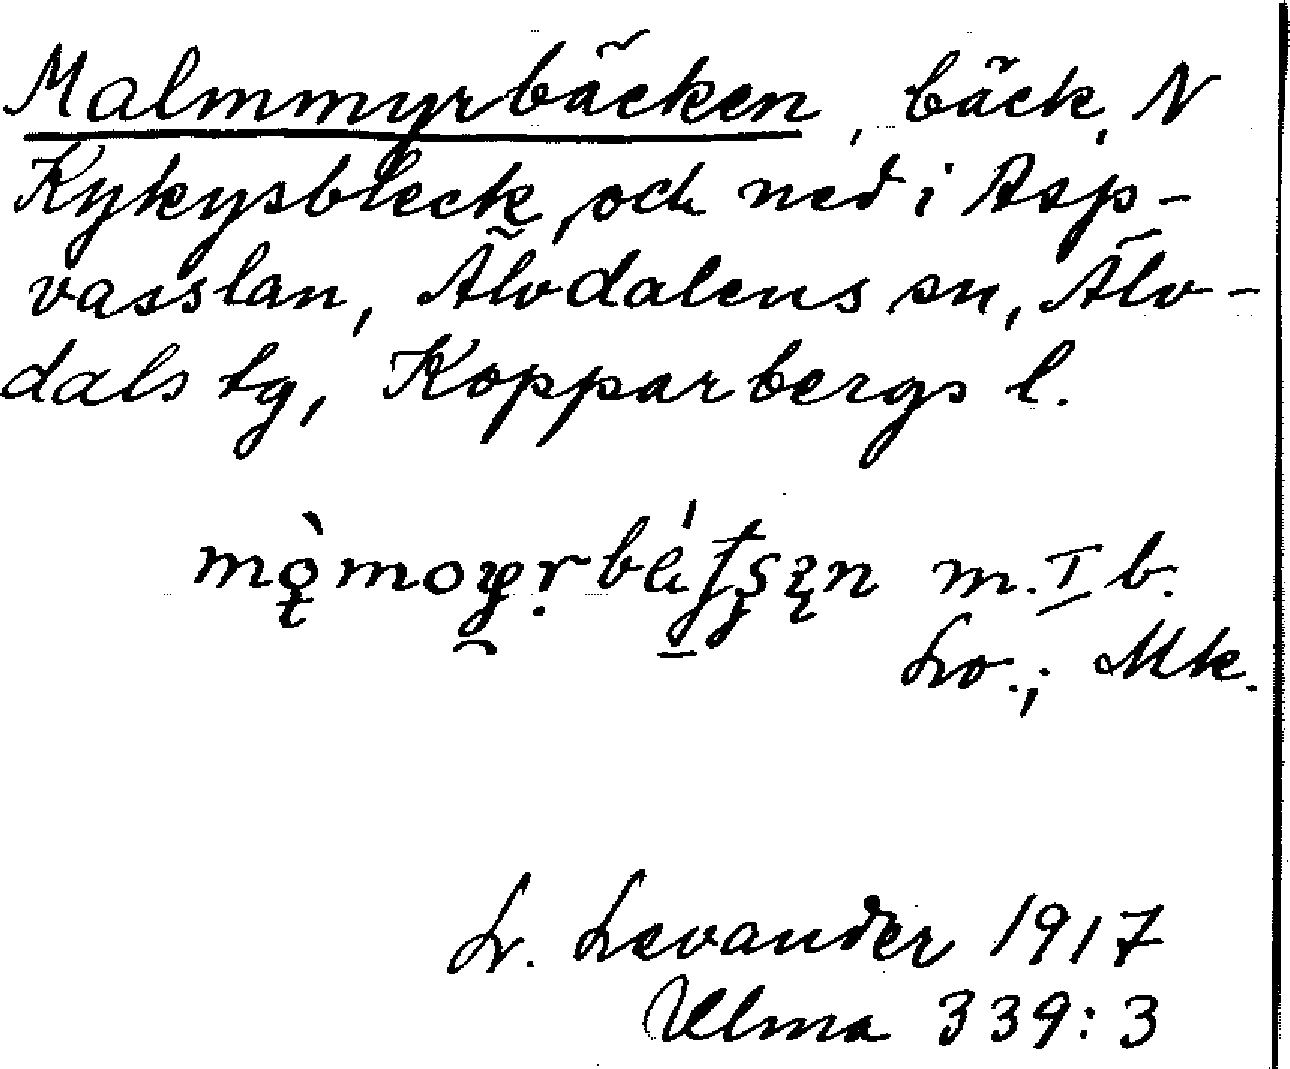 Malmmyrbäcken, bäck, N
Kykysbleck, och ned i Asp-
vasslan, Älvdalens sn, Älv-
dals tg, Kopparbergs l.
m. I b.
Lo.; Mk.
L. Levander 1917
Ulma 339:3